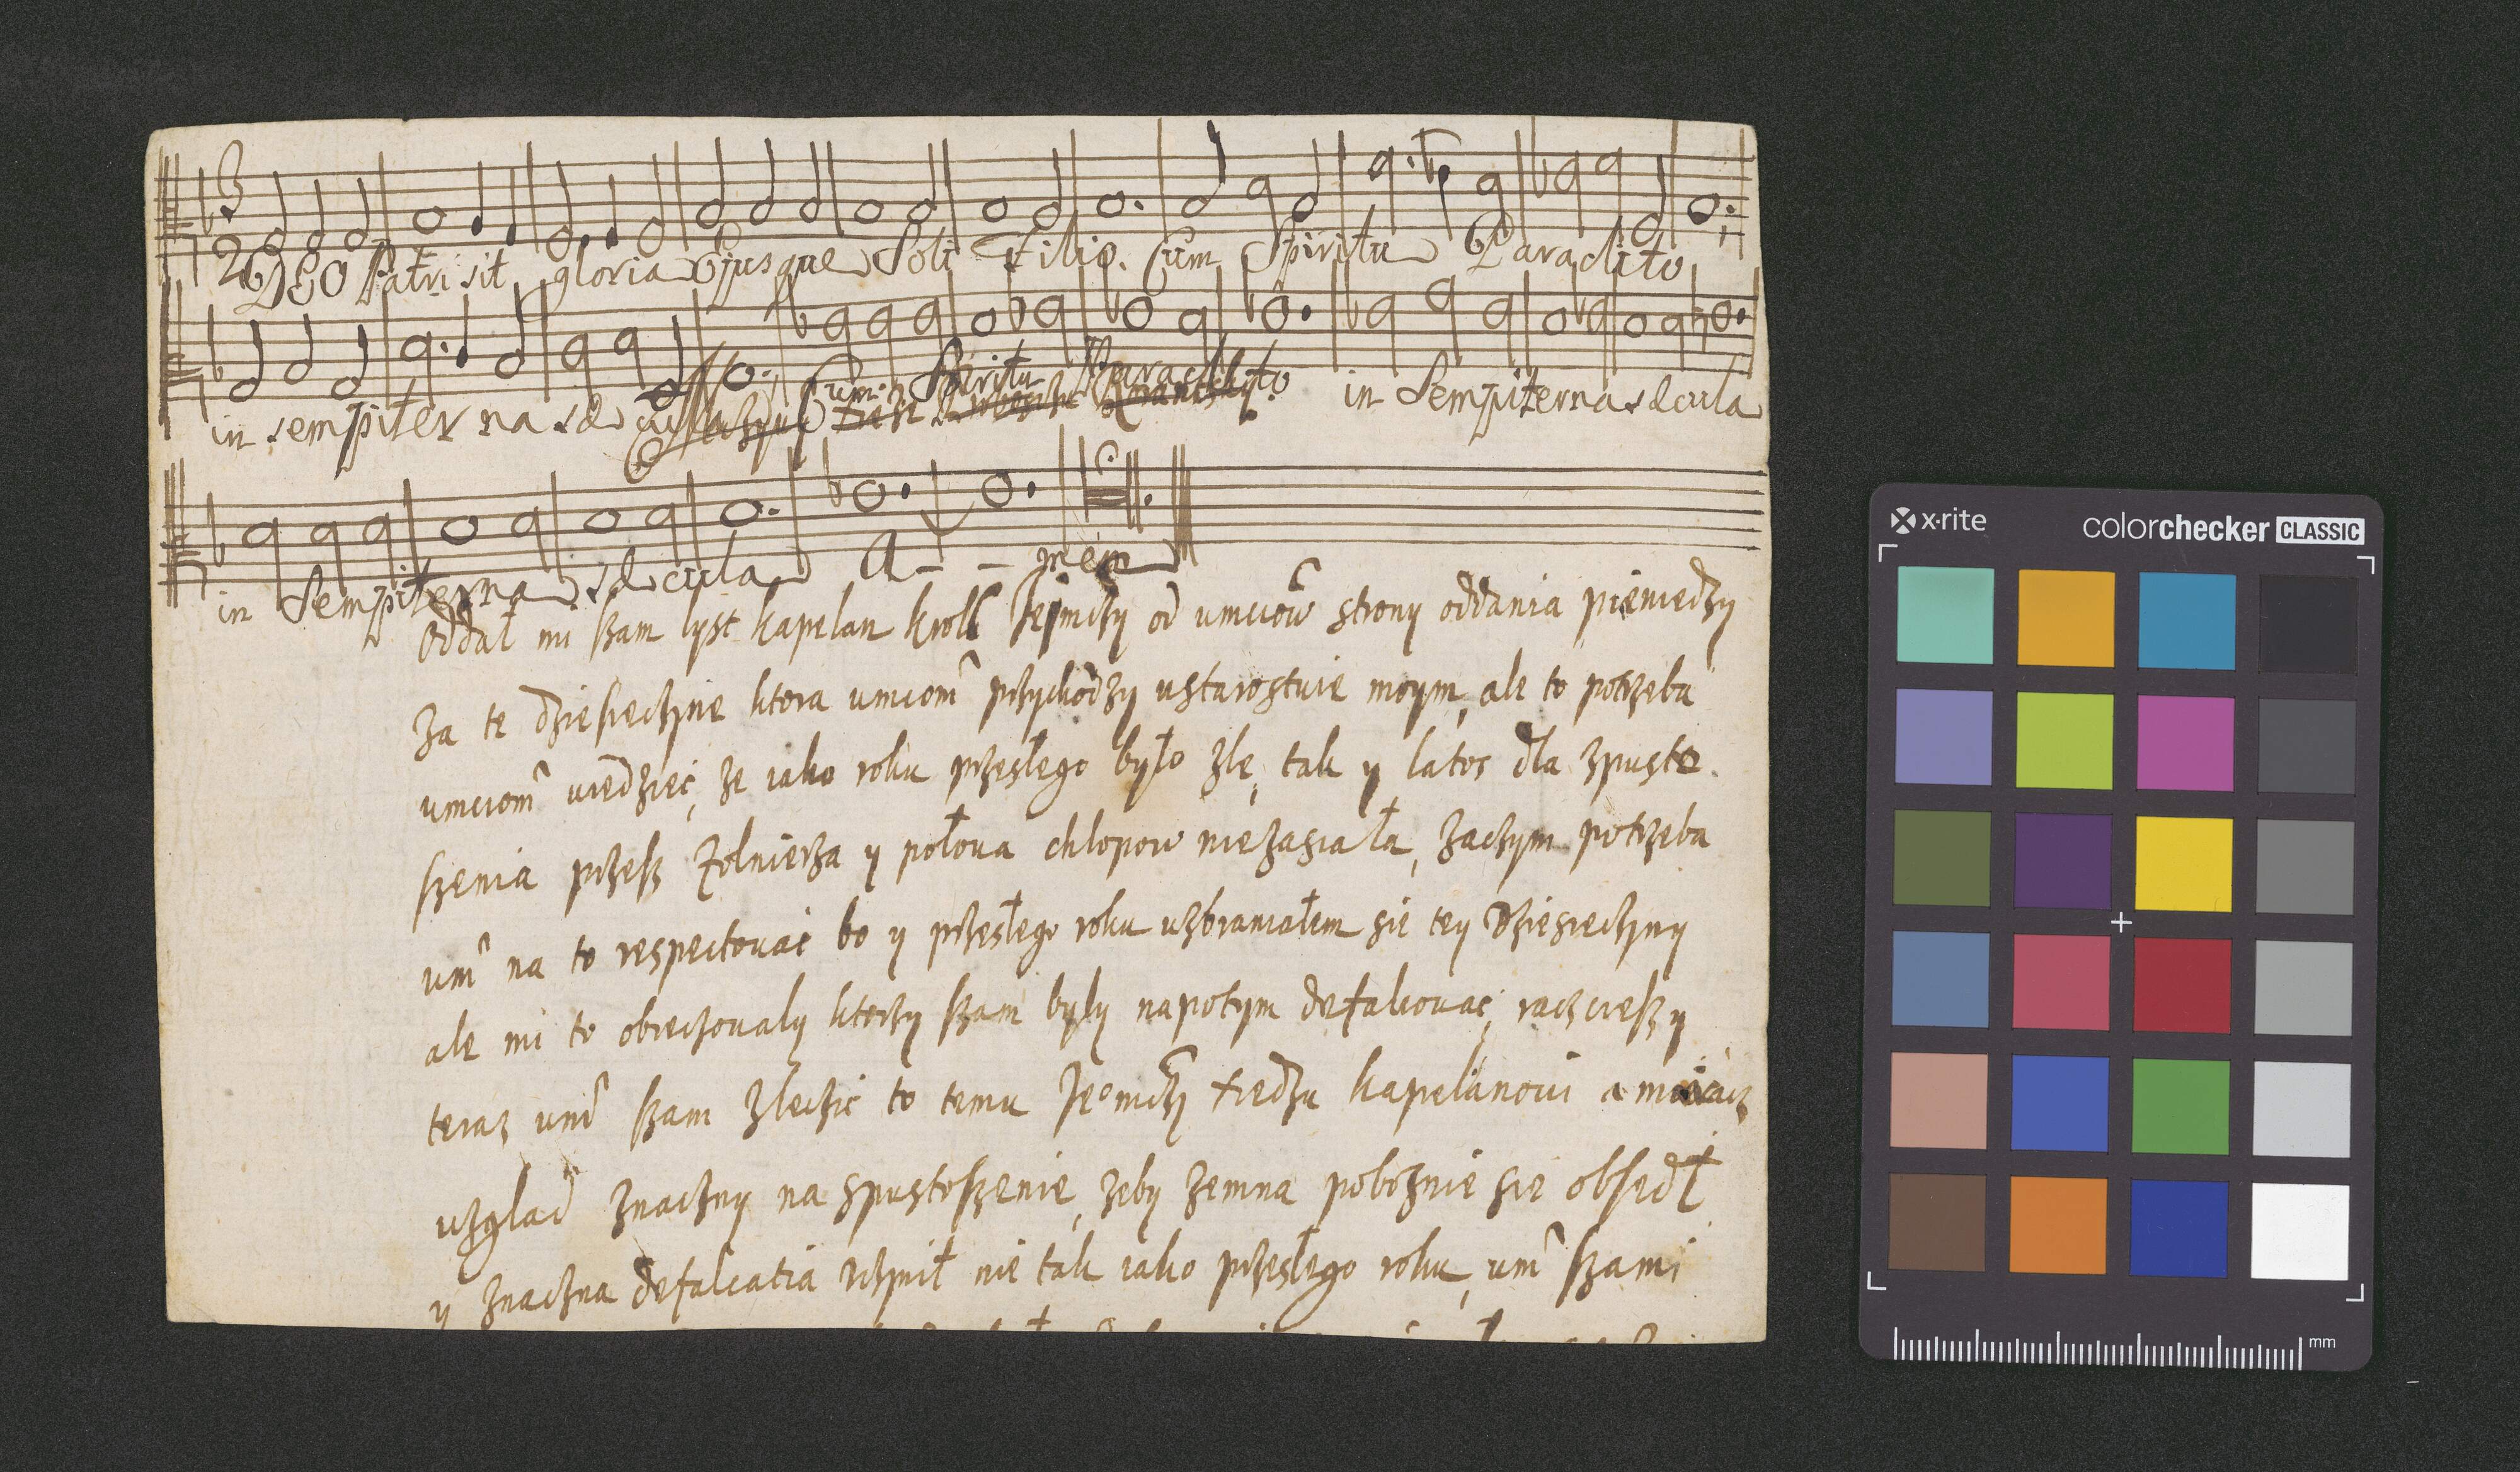 3
2
DEO Patri sit gloria Ejusque Soli Filio. Cum Spiritu Paraclito
in sempiterna sæcula Cum Spiritu Paraclito in Sempiterna sæcula
in Sempiterna sæcula A - - men
Oddał mi szam lyst kapelan kroll Jejmczy od umciow strony oddania pieniedzy
Za te dziesieczine ktora umciom przychodzy ustarostwie moym, ale to potrzeba
umciom wiedziec, ze iako roku przesłego było zle, tak y latos dla zpusto
szenia przesz Zolnierza y połowa chlopow niezasiała, zaczym potrzeba
um na to respectowac bo y przesłego roku uzbraniałem sie tey Dziesieczyny
ale mi to obieczowaly ktorzy szam byly napotym defalkowac, racz ciesz y
teraz um szam zleczic to temu Jeomczy xiedzu kapelanowi a
uzglad znaczny na spustoszenie, zeby zemna poboznie sie obszedł
y znaczna defalcatia uczynił nie tak iako przesłego roku, um szami
x-rite
colorchecker CLASSIC
mm